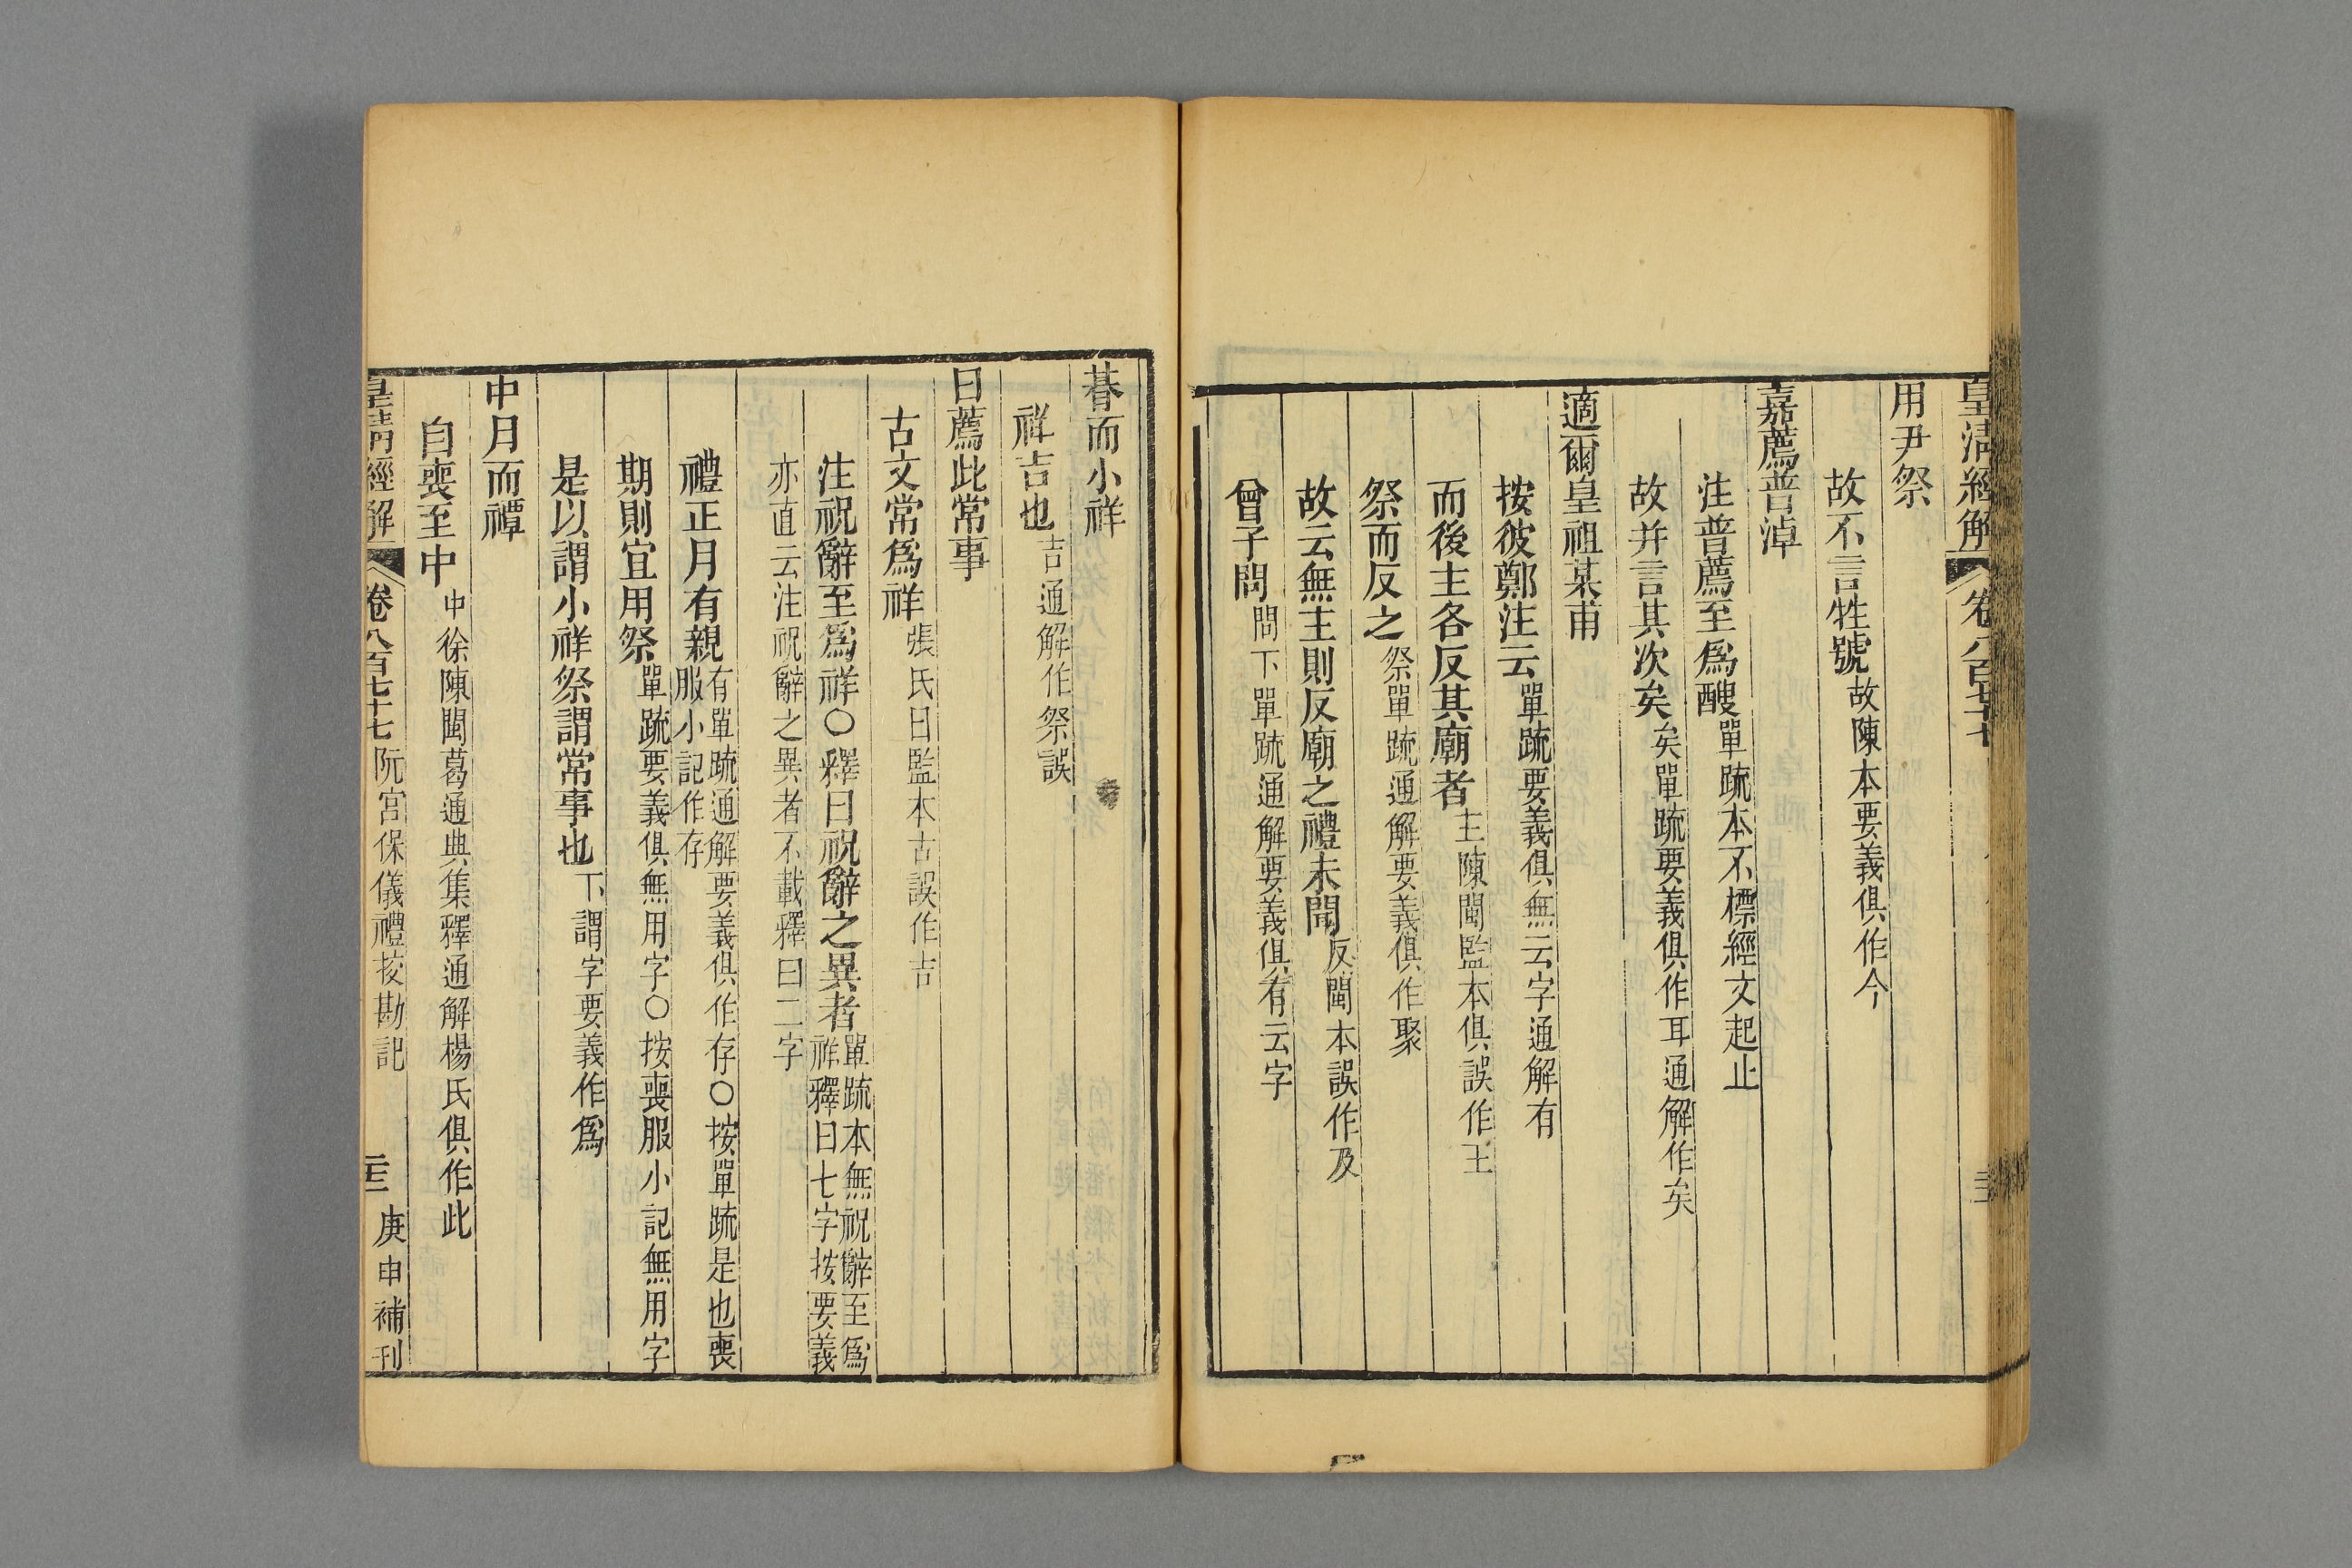 皇清經解 卷八百七十七
用尹祭
故不言牲號故陳本要義俱作今
嘉薦普淖
注普薦至爲醙單疏本不標經文起止
故并言其次矣矣單疏要義俱作耳通解作矣
適爾皇祖某甫
按彼鄭注云單疏要義俱無云字通解有
而後主各反其廟者主陳閩監本俱誤作王
祭而反之祭單疏通解要義俱作聚
故云無主則反廟之禮未聞反閩本誤作及
曾子問問下單疏通解要義俱有云字
朞而小祥
祥吉也吉通解作祭誤
曰薦此常事
古文常爲祥張氏曰監本古誤作吉
注祝辭至爲祥○釋曰祝辭之異者單疏本無祝辭至爲祥釋曰七字按要義
亦直云注祝辭之異者不載釋曰二字
禮正月有親有單疏通解要義俱作存○按單疏是也喪服小記作存
期則宜用祭單疏要義俱無用字○按喪服小記無用字
是以謂小祥祭謂常事也下謂字要義作爲
中月而禫
自喪至中中徐陳閩葛通典集釋通解楊氏俱作此
皇清經解 卷八百七十七 阮宮保儀禮挍勘記 庚申補刊